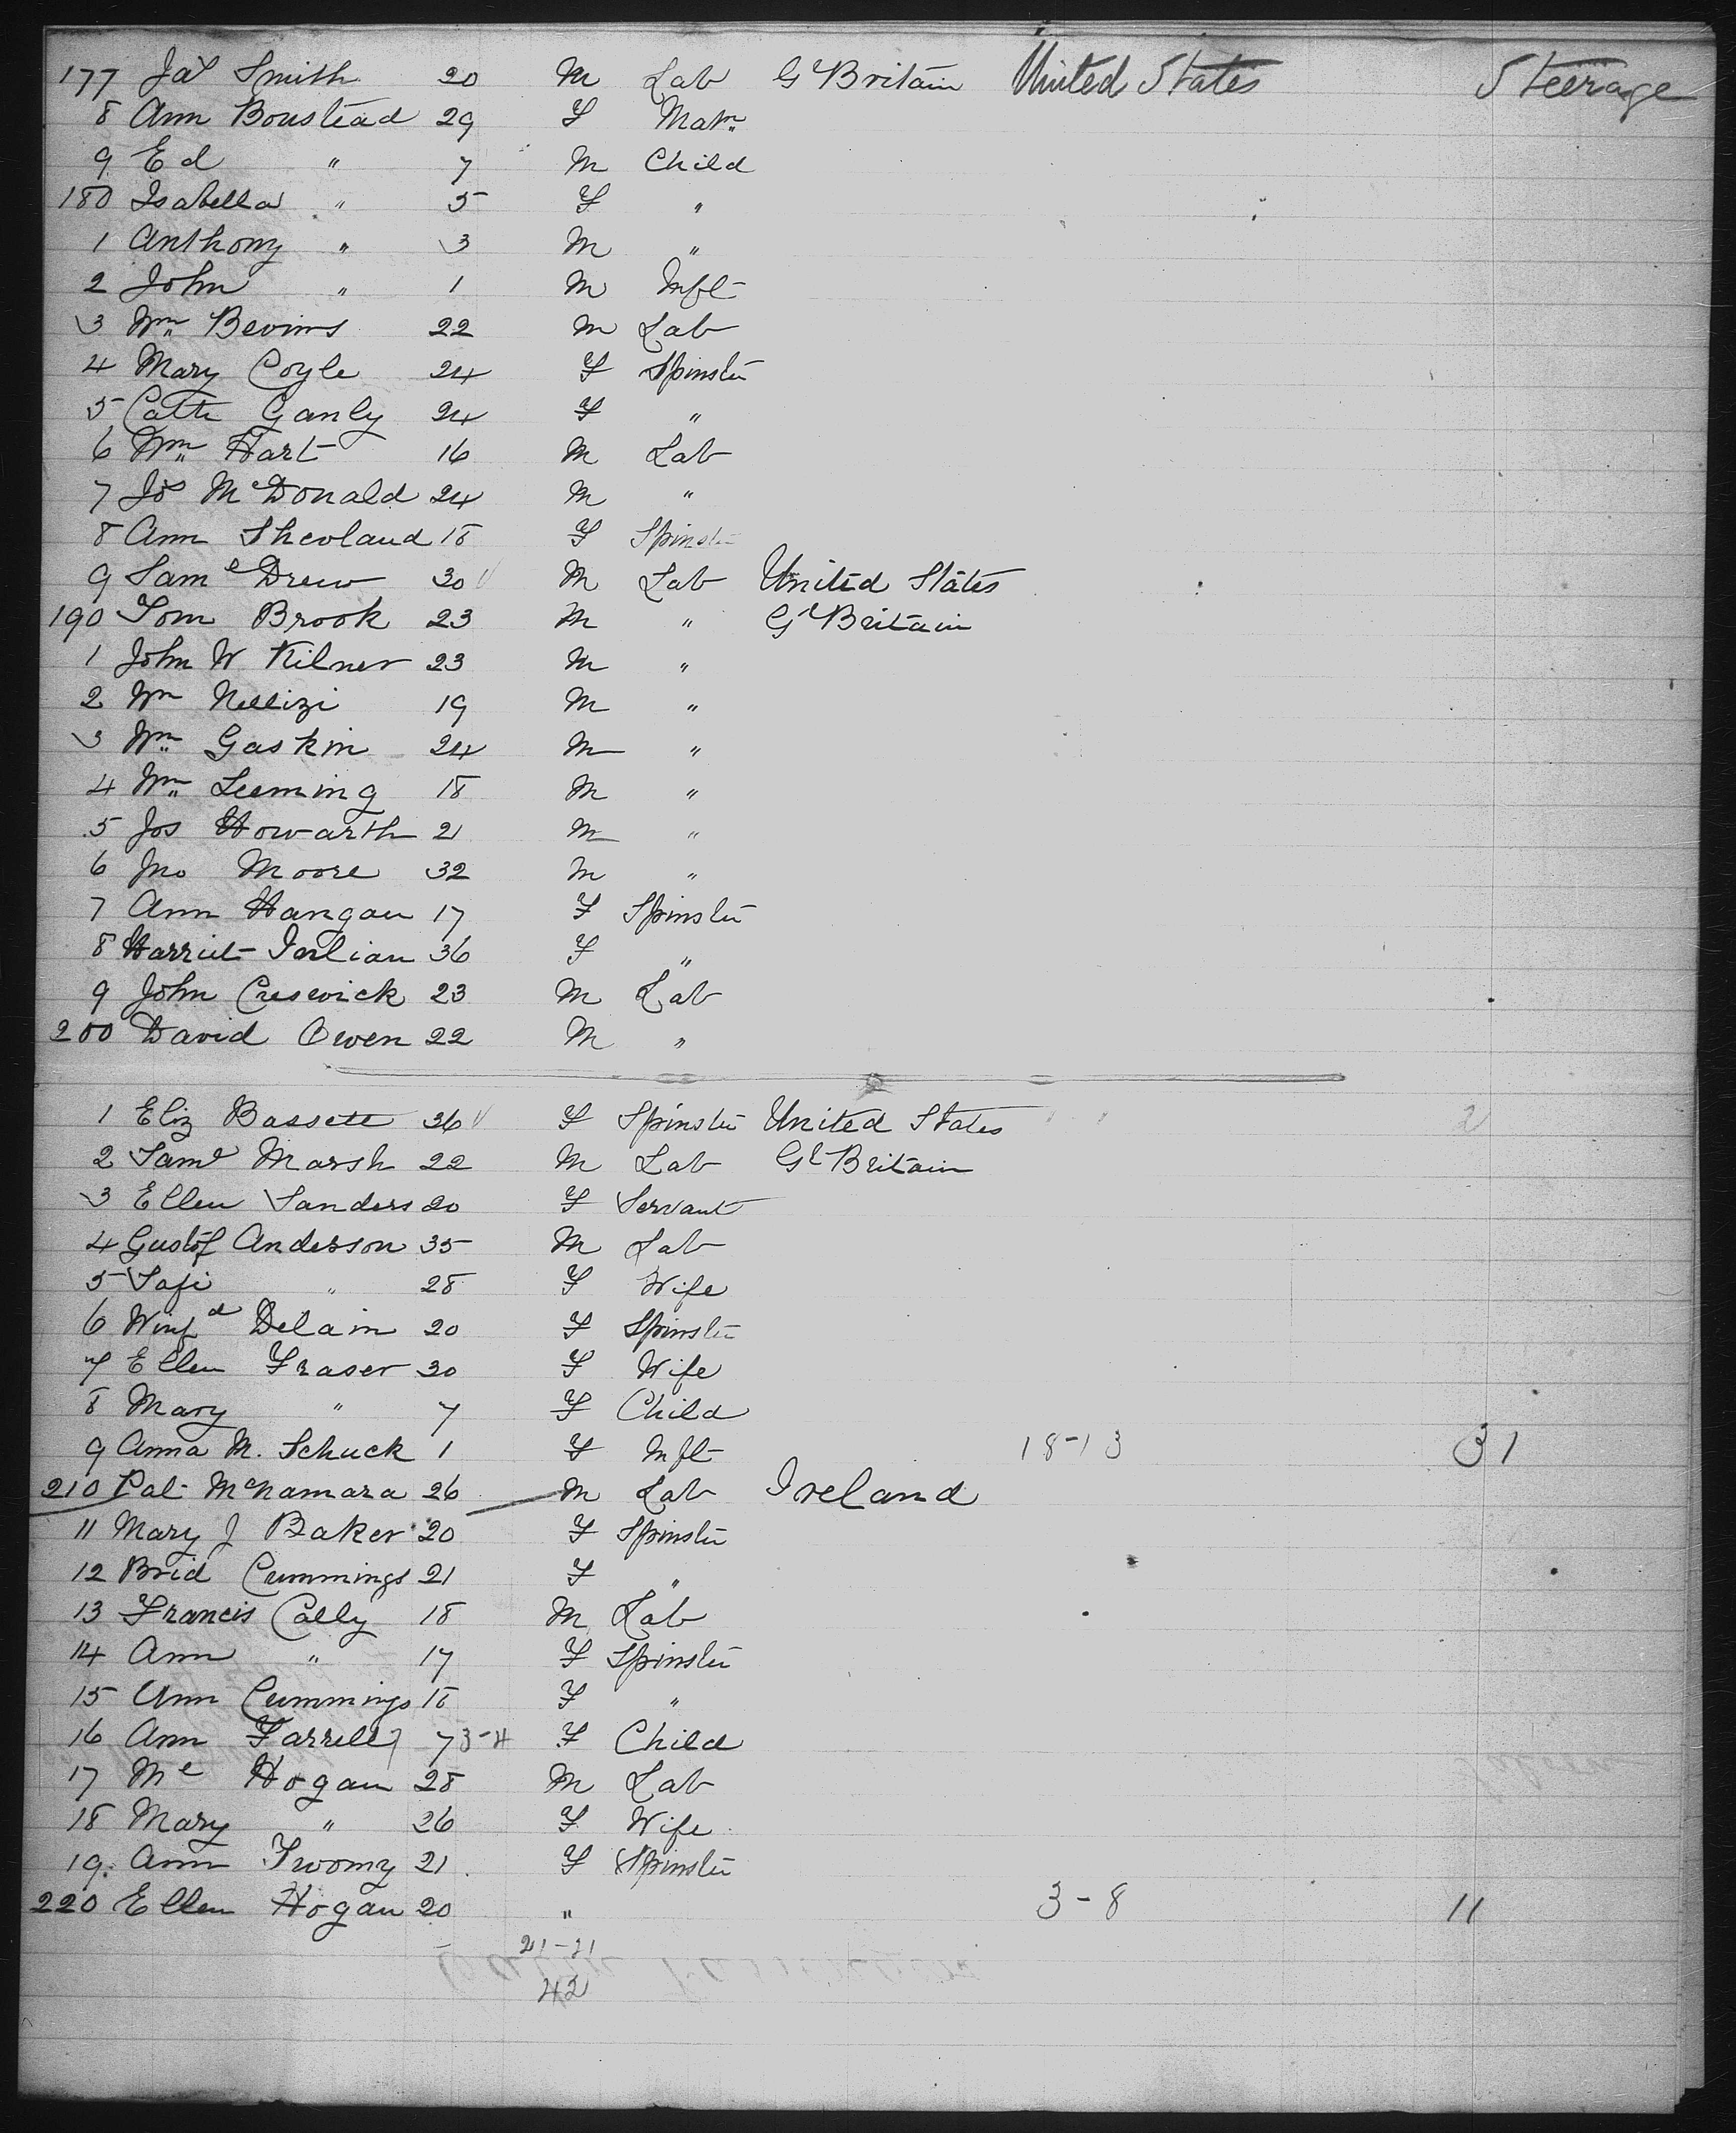 177 Jas Smith 20 M Lab Gt Britain United States Steerage
8 Ann Boustead 29 F Matn
9 Ed " 7 M Child
180 Isabella " 5 F "
1 Anthony " 3 M "
2 John " 1 M Inft
3 Wm Bevins 22 M Lab
4 Mary Coyle 24 F Spinster
5 Cath Ganly 24 F "
6 Wm Hart 16 M Lab
7 Js McDonald 24 M "
8 Ann Shevland 18 F Spinster
9 Saml Drew 30 M Lab United States
190 Tom Brook 23 M " Gt Britain
1 John W Kilner 23 M "
2 Wm 19 M "
3 Wm Gaskin 24 M "
4 Wm Leeming 18 M "
5 Jos Howarth 21 M "
6 Jno Moore 32 M "
7 Ann Hangan 17 F Spinster
8 Harriet 36 F "
9 John Creswick 23 M Lab
200 David Owen 22 M "
1 Eliz Bassett 36 F Spinster United States 2
2 Saml Marsh 22 M Lab Gt Britain
3 Ellen Sanders 20 F Servant
4 Gustof Anderson 35 M Lab
5 Sofi " 28 F Wife
6 Winfd Delain 20 F Spinster
7 Ellen Fraser 30 F Wife
8 Mary " 7 F Child
9 Anna M. Schuck 1 F Inft 18-13 31
210 Pat McNamara 26 M Lab Ireland
11 Mary J Baker 20 F Spinster
12 Brid Cummings 21 F "
13 Francis Cally 18 M Lab
14 Ann " 17 F Spinster
15 Ann Cummings 18 F "
16 Ann Farrell 7 3-4 F Child
17 Ml Hogan 28 M Lab
18 Mary " 26 F Wife
19 Ann Twomy 21 F Spinster
220 Ellen Hogan 20 " 3-8 11
21-21
42